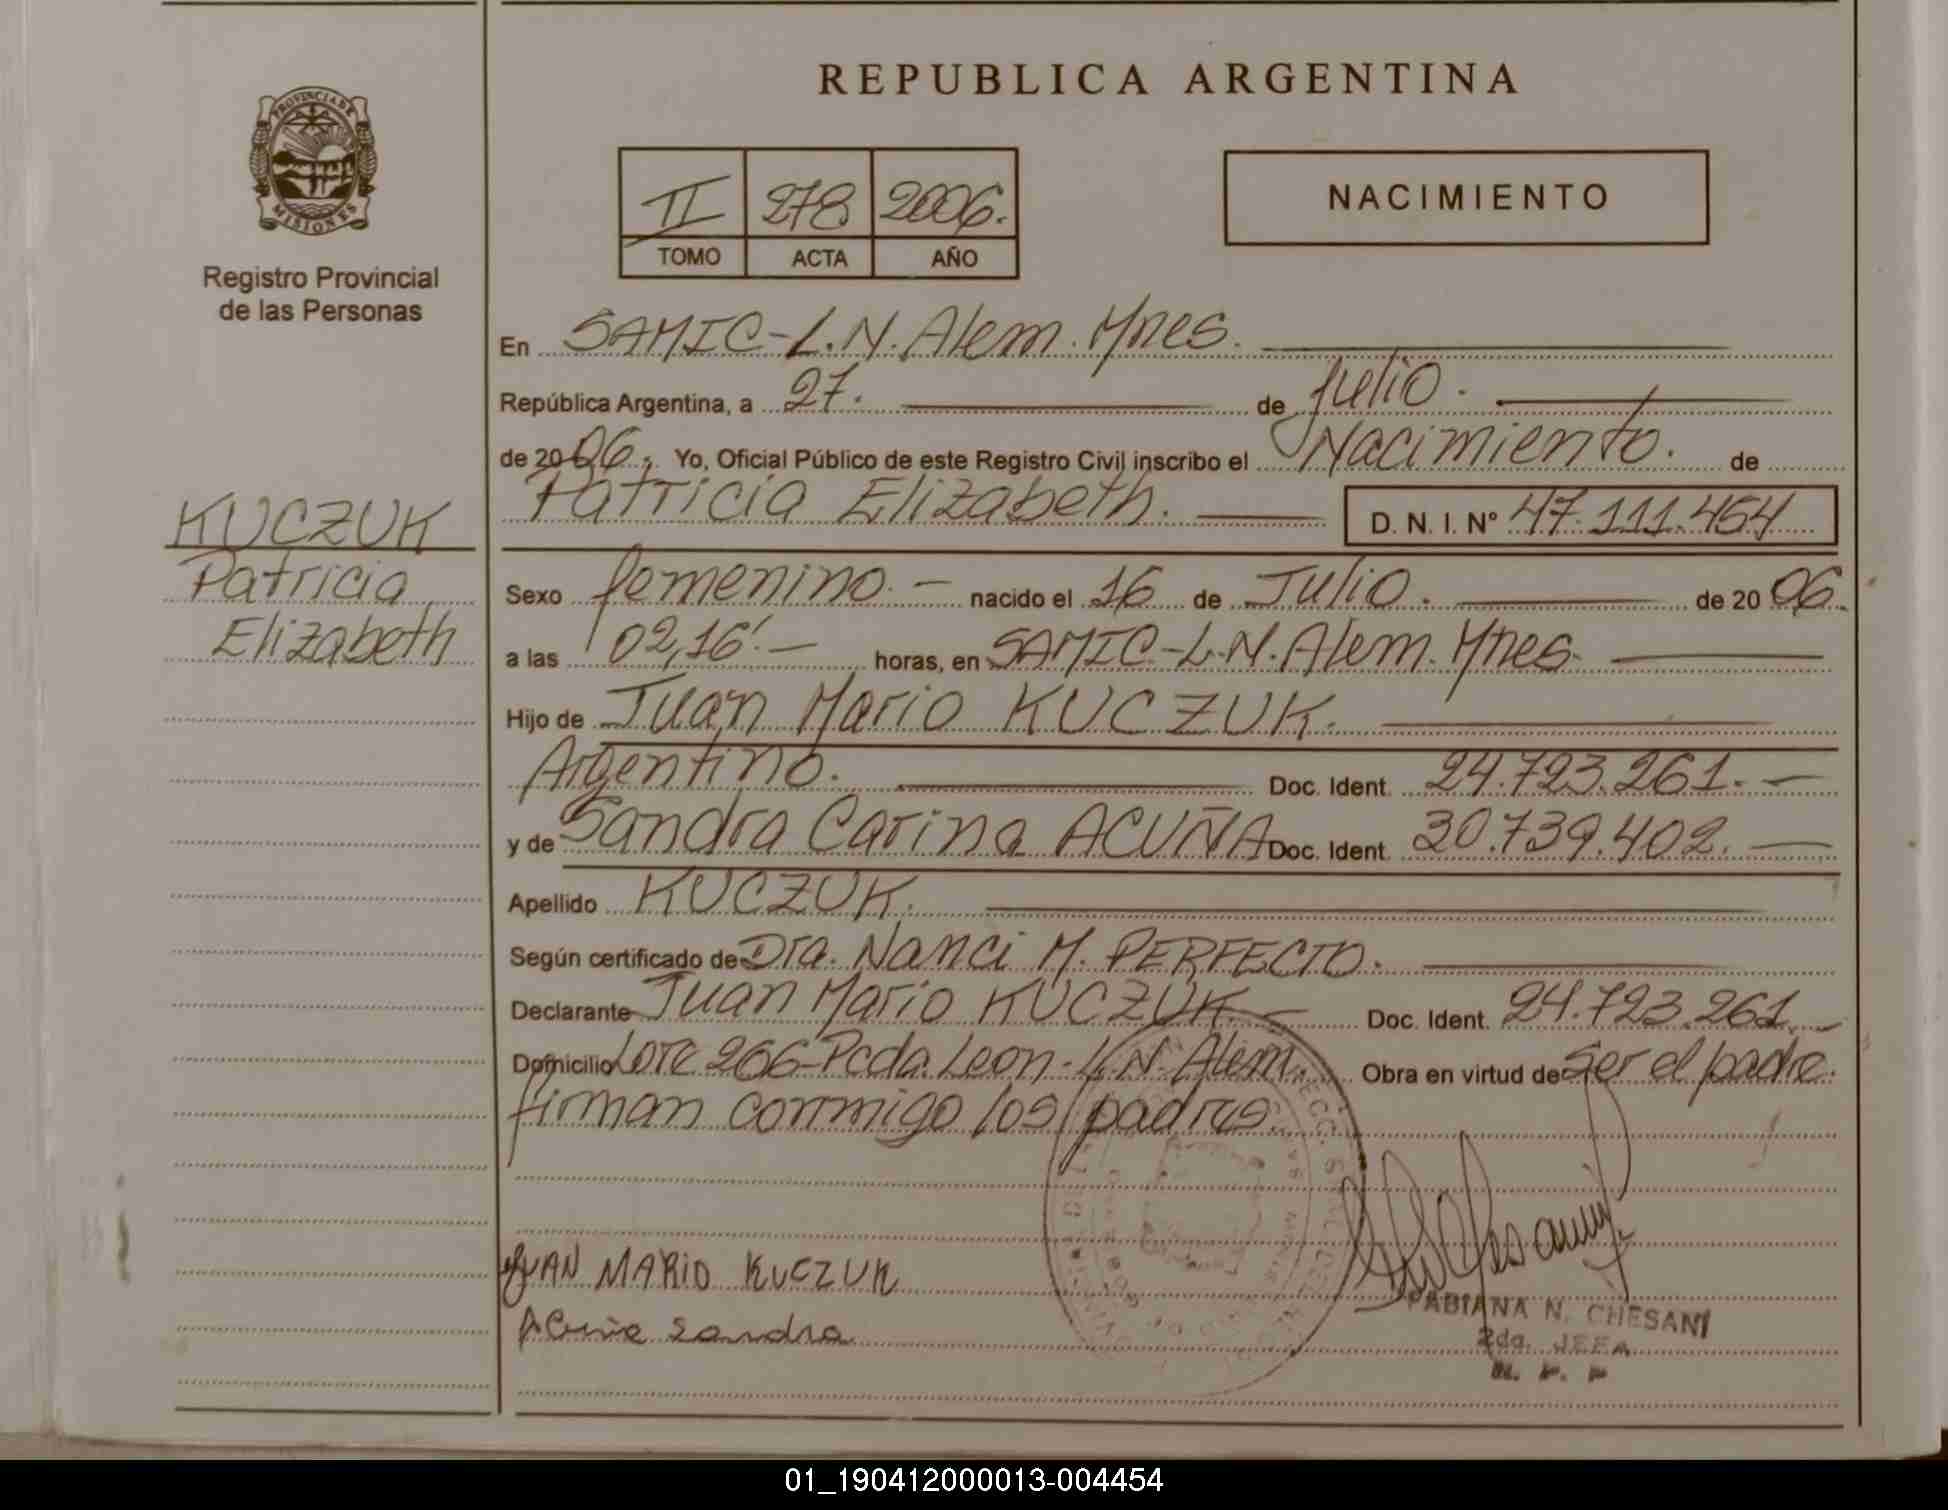 REPUBLICA ARGENTINA
PROVINCIA DE
MISIONES
Registro Provincial
de las Personas
II 278 2006.
TOMO ACTA AÑO
NACIMIENTO
En SAMIC-L.N.Alem.Mnes.
República Argentina, a 27. de julio.
de 2006. Yo, Oficial Público de este Registro Civil inscribo el Nacimiento. de
Patricia Elizabeth. D. N. I. N° 47.111.454
KUCZUK
Patricia
Elizabeth
Sexo femenino.- nacido el 16 de Julio. de 2006.
a las 02,16'.- horas, en SAMIC-L.N.Alem.Mnes.
Hijo de Juan Mario KUCZUK.
Argentino. Doc. Ident. 24.723.261.-
y de Sandra Carina ACUÑA Doc. Ident. 30.739.402.-
Apellido KUCZUK.
Según certificado de Dra. Nanci M. PERFECTO.
Declarante Juan Mario KUCZUK.- Doc. Ident. 24.723.261.-
Domicilio Lote 266-Pcda.Leon-L.N.Alem. Obra en virtud de ser el padre.
firman conmigo los padres.
JUAN MARIO KUCZUK
Acuña Sandra
FABIANA N. CHESANI
2da. JEFA
01_190412000013-004454